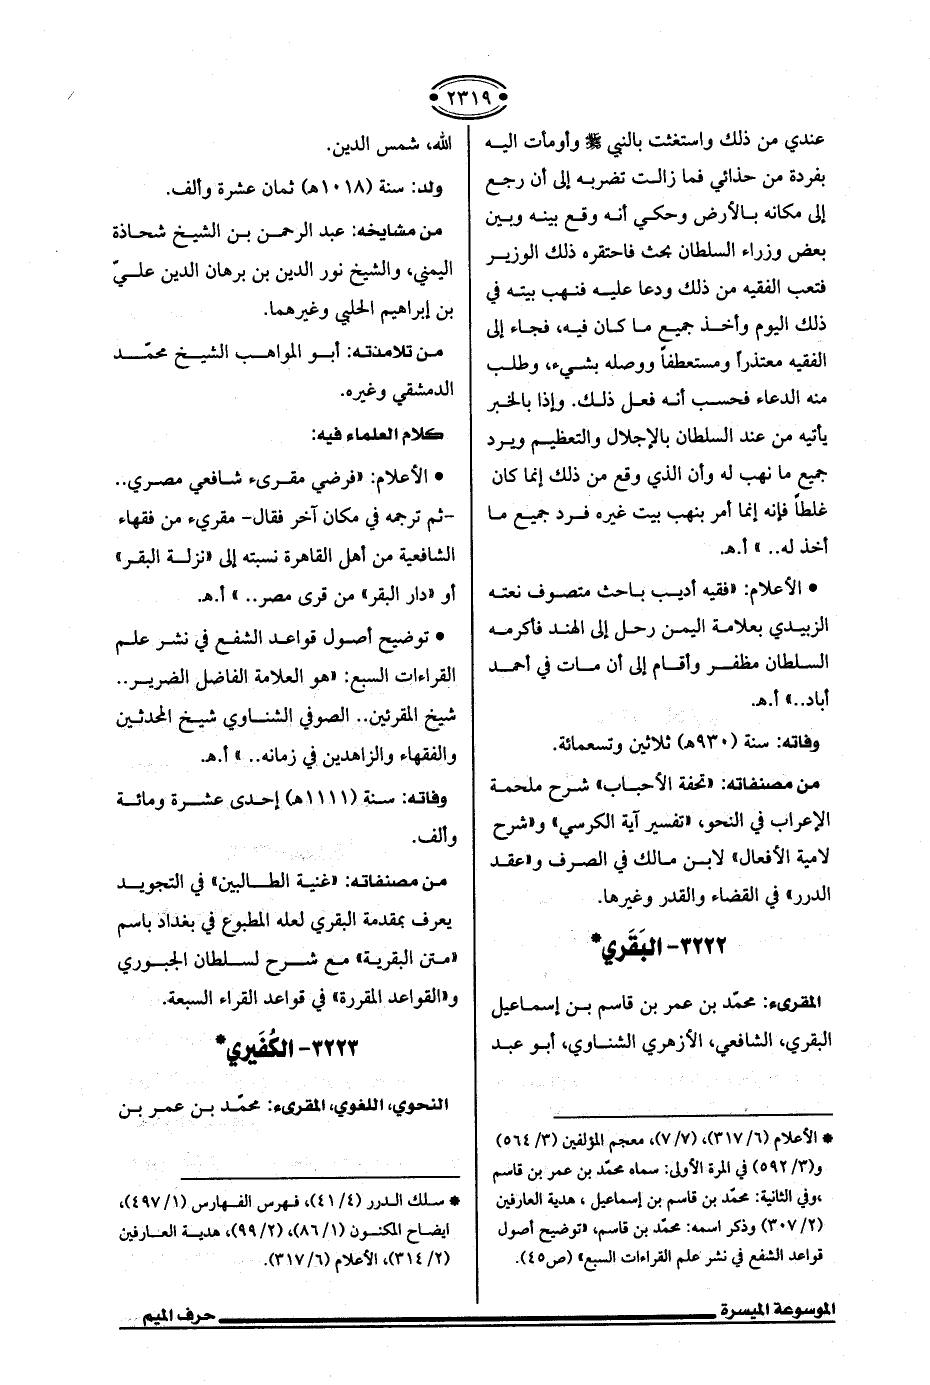 ٢٣١٩
عندي من ذلك واستغثت بالنبي ﷺ وأومأت اليه
بفردة من حذائي فما زالت تضربه إلى أن رجع
إلى مكانه بالأرض وحكي أنه وقع بينه وبين
بعض وزراء السلطان بحث فاحتقره ذلك الوزير
فتعب الفقيه من ذلك ودعا عليه فنهب بيته في
ذلك اليوم وأخذ جميع ما كان فيه، فجاء إلى
الفقيه معتذراً ومستعطفاً ووصله بشيء، وطلب
منه الدعاء فحسب أنه فعل ذلك. وإذا بالخبر
يأتيه من عند السلطان بالإجلال والتعظيم ويرد
جميع ما نهب له وأن الذي وقع من ذلك إنما كان
غلطاً فإنه إنما أمر بنهب بيت غيره فرد جميع ما
أخذ له.. » أ.هـ.
• الأعلام: «فقيه أديب باحث متصوف نعته
الزبيدي بعلامة اليمن رحل إلى الهند فأكرمه
السلطان مظفر وأقام إلى أن مات في أحمد
أباد..» أ.هـ.
وفاته: سنة (٩٣٠هـ) ثلاثين وتسعمائة.
من مصنفاته: «تحفة الأحباب» شرح ملحمة
الإعراب في النحو، «تفسير آية الكرسي» و«شرح
لامية الأفعال» لابن مالك في الصرف و«عقد
الدرر» في القضاء والقدر وغيرها.
٣٢٢٢- البَقَري*
المقرىء: محمّد بن عمر بن قاسم بن إسماعيل
البقري، الشافعي، الأزهري الشناوي، أبو عبد
* الأعلام (٣١٧/٦)، (٧/٧)، معجم المؤلفين (٥٦٤/٣)
و(٥٩٢/٣) في المرة الأولى: سماه محمّد بن عمر بن قاسم
،وفي الثانية: محمّد بن قاسم بن إسماعيل ، هدية العارفين
(٣٠٧/٢) وذكر اسمه: محمّد بن قاسم، «توضيح أصول
قواعد الشفع في نشر علم القراءات السبع» (ص٤٥).
الله، شمس الدين.
ولد: سنة (١٠١٨هـ) ثمان عشرة وألف.
من مشايخه: عبد الرحمن بن الشيخ شحاذة
اليمني، والشيخ نور الدين بن برهان الدين عليّ
بن إبراهيم الحلبي وغيرهما.
من تلامذته: أبو المواهب الشيخ محمّد
الدمشقي وغيره.
كلام العلماء فيه:
• الأعلام: «فرضي مقرىء شافعي مصري..
-ثم ترجمه في مكان آخر فقال- مقريء من فقهاء
الشافعية من أهل القاهرة نسبته إلى «نزلة البقر»
أو «دار البقر» من قرى مصر.. » أ.هـ.
• توضيح أصول قواعد الشفع في نشر علم
القراءات السبع: «هو العلامة الفاضل الضرير..
شيخ المقرئين.. الصوفي الشناوي شيخ المحدثين
والفقهاء والزاهدين في زمانه.. » أ.هـ.
وفاته: سنة (١١١١هـ) إحدى عشرة ومائة
وألف.
من مصنفاته: «غنية الطالبين» في التجويد
يعرف بمقدمة البقري لعله المطبوع في بغداد باسم
«متن البقرية» مع شرح لسلطان الجبوري
و«القواعد المقررة» في قواعد القراء السبعة.
٣٢٢٣- الكُفَيري*
النحوي، اللغوي، المقرىء: محمّد بن عمر بن
* سلك الدرر (٤١/٤)، فهرس الفهارس (٤٩٧/١)،
ايضاح المكنون (٨٦/١)، (٩٩/٢)، هدية العارفين
(٣١٤/٢)، الأعلام (٣١٧/٦).
الموسوعة الميسرة
حرف الميم